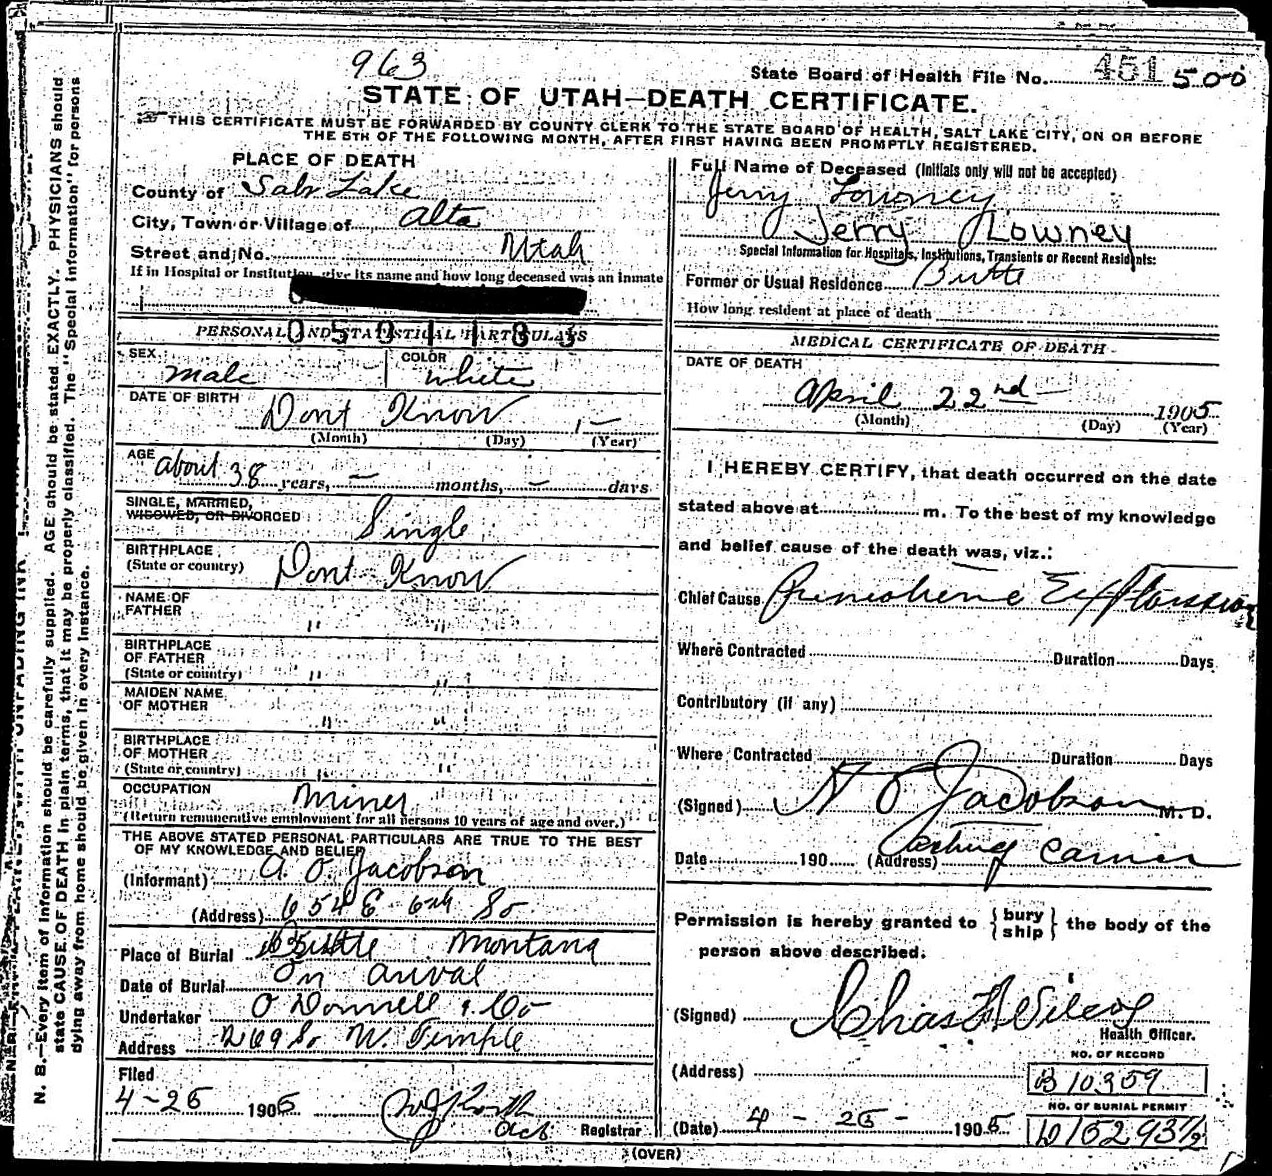 963
State Board of Health File No. 451 500
STATE OF UTAH—DEATH CERTIFICATE.
THIS CERTIFICATE MUST BE FORWARDED BY COUNTY CLERK TO THE STATE BOARD OF HEALTH, SALT LAKE CITY, ON OR BEFORE
THE 5TH OF THE FOLLOWING MONTH, AFTER FIRST HAVING BEEN PROMPTLY REGISTERED.
N. B.—Every item of information should be carefully supplied. AGE should be stated EXACTLY. PHYSICIANS should
state CAUSE OF DEATH in plain terms, that it may be properly classified. The "Special Information" for persons
dying away from home should be given in every instance.
PLACE OF DEATH
County of Salt Lake
City, Town or Village of Alta
Street and No. Utah
If in Hospital or Institution give its name and how long deceased was an inmate
PERSONAL AND STATISTICAL PARTICULARS
SEX male
COLOR white
DATE OF BIRTH Dont Know 1 —
(Month) (Day) (Year)
AGE about 38 years, — months, — days
SINGLE, MARRIED,
WIDOWED, OR DIVORCED Single
BIRTHPLACE
(State or country) Dont Know
NAME OF
FATHER " "
BIRTHPLACE
OF FATHER
(State or country) " "
MAIDEN NAME
OF MOTHER " "
BIRTHPLACE
OF MOTHER
(State or country) " "
OCCUPATION Miner
(Return remunerative employment for all persons 10 years of age and over.)
THE ABOVE STATED PERSONAL PARTICULARS ARE TRUE TO THE BEST
OF MY KNOWLEDGE AND BELIEF
(Informant) A. O. Jacobson
(Address) 654 E 6th So
Place of Burial Butte Montana
Date of Burial On arival
Undertaker O Donnell & Co
Address 269 So W. Temple
Filed
4-25 1905
Registrar
Full Name of Deceased (Initials only will not be accepted)
Jerry Lowney
Jerry Lowney
Special Information for Hospitals, Institutions, Transients or Recent Residents:
Former or Usual Residence Butte
How long resident at place of death
MEDICAL CERTIFICATE OF DEATH
DATE OF DEATH
April 22nd 1905
(Month) (Day) (Year)
I HEREBY CERTIFY, that death occurred on the date
stated above at m. To the best of my knowledge
and belief cause of the death was, viz.:
Chief Cause Explossion
Where Contracted Duration Days
Contributory (if any)
Where Contracted Duration Days
(Signed) A O Jacobson M. D.
Date 190 (Address) Acting
Permission is hereby granted to {bury ship} the body of the
person above described.
(Signed) Chas F Wilcox
Health Officer.
(Address)
NO. OF RECORD
B 10359
NO. OF BURIAL PERMIT
D 15293½
(Date) 4 - 25 - 1905
(OVER)